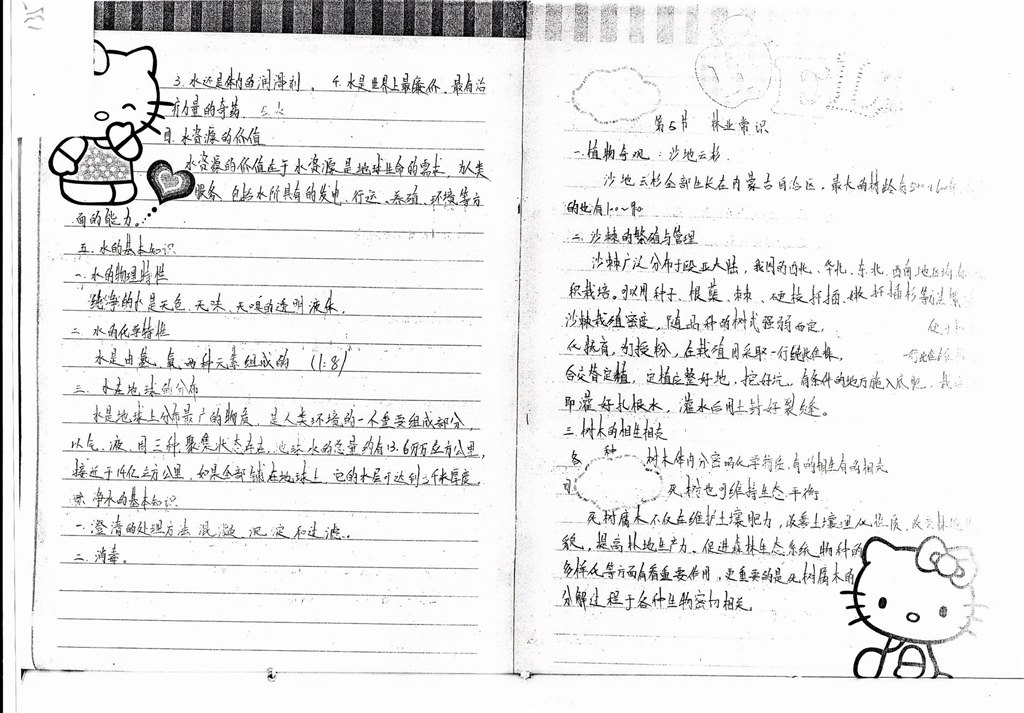 3. 水还是体内的润滑剂。 4. 水是世界上最廉价、最有治
疗力量的奇药
四. 水资源的价值
水资源的价值在于水资源是地球生命的需求，为人类
服务，包括水所具有的发电、行运、养殖、环境等方
面的能力。
五. 水的基本知识
一. 水的物理特性
纯净的水是无色、无味、无嗅的透明液体。
二 水的化学特性
水是由氢、氧两种元素组成的 (1:8)
三. 水在地球的分布
水是地球上分布最广的物质，是人类环境的一个重要组成部分，
以气、液、固三种聚集状态存在，地球水的总量约有13.6万万立方公里，
接近于14亿立方公里，如果全部铺在地球上，它的水层可达到三千米厚度。
四. 净水的基本知识
一. 澄清的处理方法 混凝、沉淀和过滤。
二. 消毒。
第5节 林业常识
一. 植物奇观：沙地云杉.
沙地云杉全部生长在内蒙古自治区，最大的树龄有500~600年
的也有100~
二. 沙棘的繁殖与管理
沙棘广泛分布于欧亚大陆，我国的西北、华北、东北、西南地区均有
积栽培。可以用种子、根蘖、硬枝扦插、嫩扦插
沙棘栽植密度，随品种的树式强弱而定，
化抚育，为授粉，在栽植园采取一行
合交替定植，定植应整好地，挖好坑，有条件的地方施入底肥，
即灌好扎根水，灌水后用土封好裂缝。
三. 树木的相生相克
各 种 树木体内分密的化学物质，有的相生有的相克
四 死树也可维持生态平衡
死树腐木不仅在维护土壤肥力，改善土壤理化性质，改变林地
貌，提高林地生产力，促进森林生态系统物种的
多样化等方面有着重要作用，更重要的是死树腐木的
分解过程于各种生物密切相关。